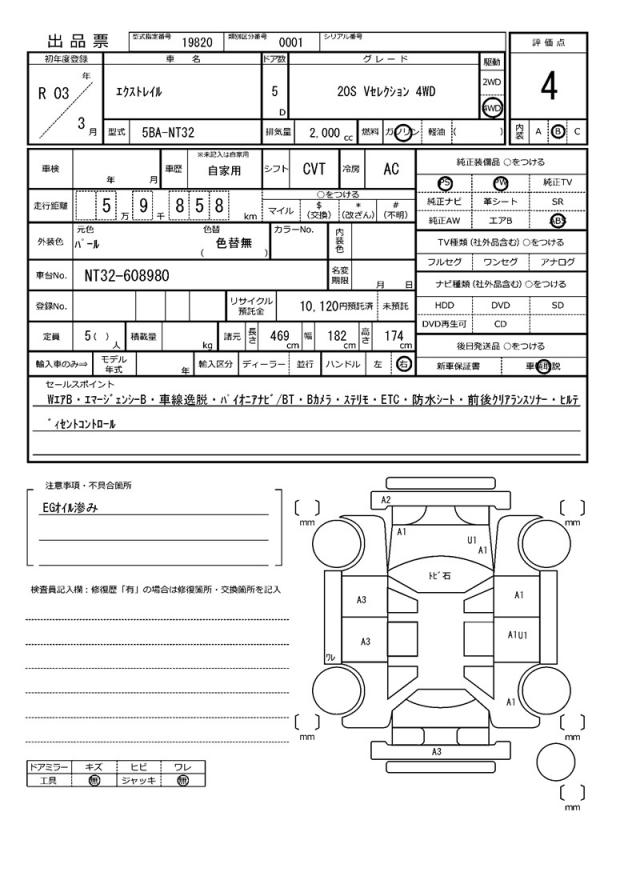 出品票 型式指定番号 19820 類別区分番号 0001 シリアル番号
評価点
4
初年度登録 車名 ドア数 グレード 駆動
R 03 年 3 月 エクストレイル 5 D 20S Vセレクション 4WD 2WD 4WD
型式 5BA-NT32 排気量 2,000 cc 燃料 ガソリン 軽油 ( ) 内装 A B C
車検 年 月 車歴 ※未記入は自家用 自家用 シフト CVT 冷房 AC
走行距離 5 万 9 千 8 5 8 km ○をつける
マイル $(交換) *(改ざん) #(不明)
外装色 元色 パール 色替 色替無 ( ) カラーNo. 内装色
車台No. NT32-608980 名変期限 月 日
登録No. リサイクル預託金 10,120円預託済 未預託
定員 5( ) 人 積載量 kg 諸元 長さ 469 cm 幅 182 cm 高さ 174 cm
輸入車のみ⇒ モデル年式 年 輸入区分 ディーラー 並行 ハンドル 左 右
純正装備品 ○をつける
PS PW 純正TV
純正ナビ 革シート SR
純正AW エアB ABS
TV種類(社外品含む)○をつける
フルセグ ワンセグ アナログ
ナビ種類(社外品含む)○をつける
HDD DVD SD
DVD再生可 CD
後日発送品 ○をつける
新車保証書 車輌取説
セールスポイント
WエアB・エマージェンシーB・車線逸脱・パイオニアナビ/BT・Bカメラ・ステリモ・ETC・防水シート・前後クリアランスソナー・ヒルデ
ィセントコントロール
注意事項・不具合箇所
EGオイル滲み
検査員記入欄:修復歴「有」の場合は修復箇所・交換箇所を記入
ドアミラー キズ ヒビ ワレ
工具 無 ジャッキ 無
A2
mm mm
A1 U1 A1
トビ石
A3 A1
A3 A1U1
ワレ
A1
mm mm
A3
mm